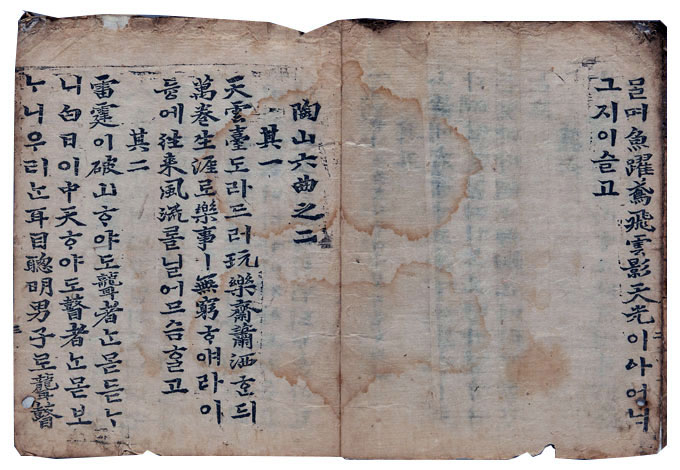 믈며魚躍鳶飛雲影天光이아어늬
그지이슬고
陶山六曲之二
其一
天雲臺도라드러玩樂齋蕭洒ᄒᆞᆫ듸
萬卷生涯로樂事ㅣ無窮ᄒᆞ얘라이
듕에往來風流ᄅᆞᆯ닐어므슴ᄒᆞᆯ고
其二
雷霆이破山ᄒᆞ야도聾者ᄂᆞᆫ몯듣ᄂᆞ
니白日이中天ᄒᆞ야도瞽者ᄂᆞᆫ몯보
ᄂᆞ니우리ᄂᆞᆫ耳目聰明男子로聾瞽